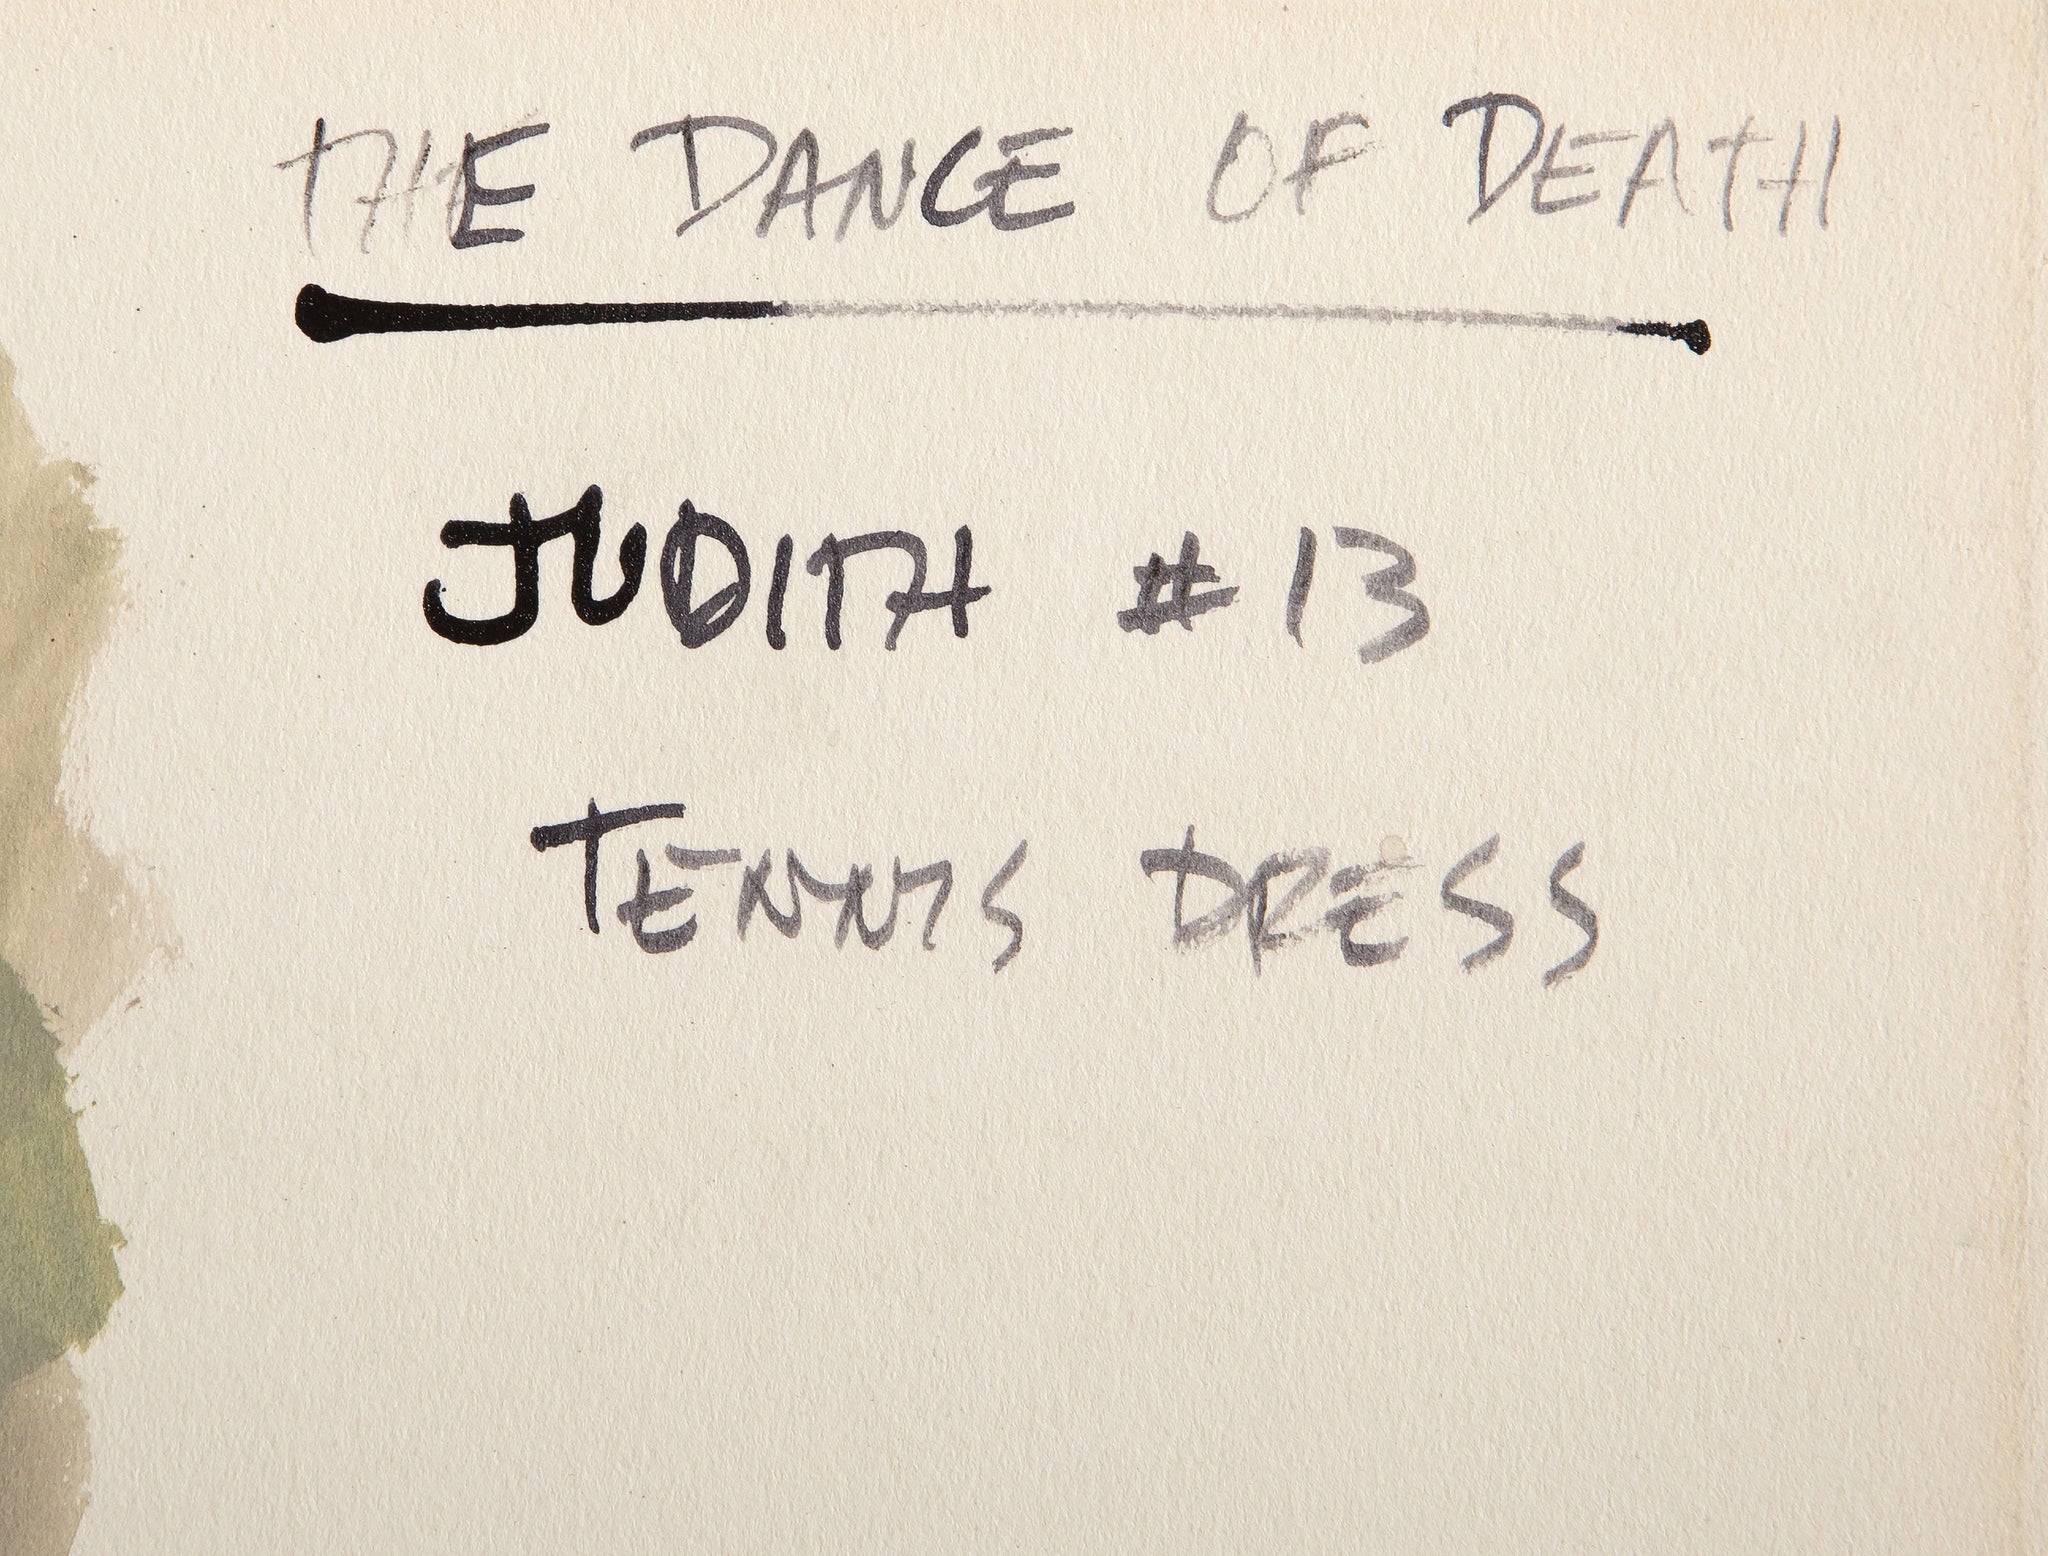 THE DANCE OF DEATH
JUDITH #13
TENNIS DRESS